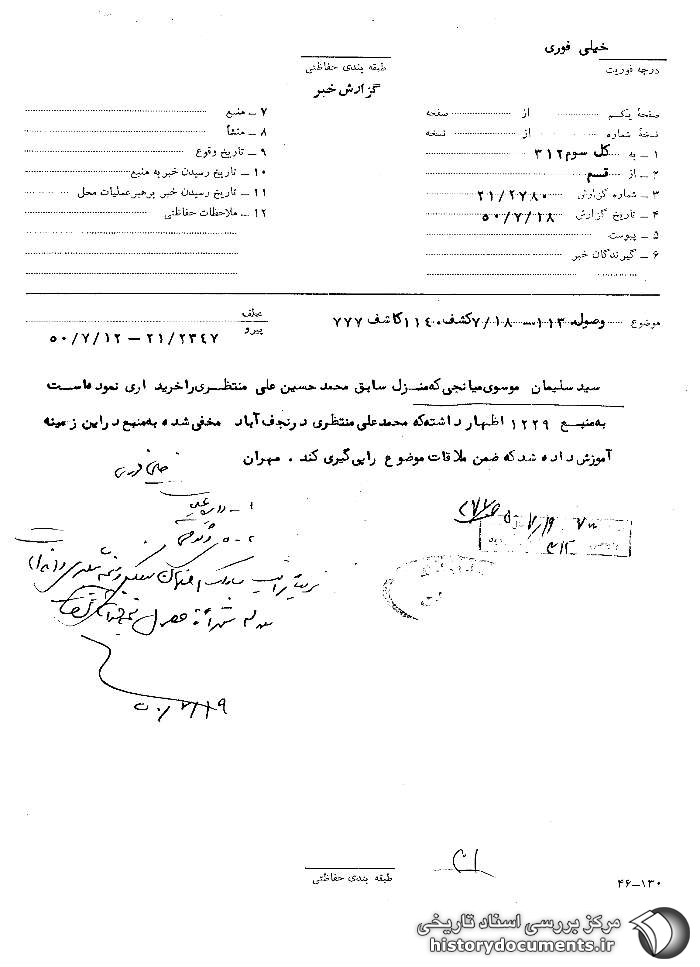 خیلی فوری
درجه فوریت
طبقه بندی حفاظتی
گزارش خبر
صفحهٔ یکم ........ از ........ صفحه
نسخهٔ شماره ........ از ........ نسخه
۱ ـ به کل سوم ۳۱۲
۲ ـ از قسم
۳ ـ شماره گزارش ۲۱/۲۷۸۰
۴ ـ تاریخ گزارش ۵۰/۷/۱۸
۵ ـ پیوست
۶ ـ گیرندگان خبر
۷ ـ منبع
۸ ـ منشأ
۹ ـ تاریخ وقوع
۱۰ ـ تاریخ رسیدن خبر به منبع
۱۱ ـ تاریخ رسیدن خبر برهبر عملیات محل
۱۲ ـ ملاحظات حفاظتی
موضوع وصوله ۱۱۳ ـ ۷/۱۸ کشف ۱۱۴۰ کاشف ۷۷۷
عطف
پیرو ۲۱/۲۳۴۷ ـ ۵۰/۷/۱۲
سید سلیمان موسوی میانجی که منزل سابق محمد حسین علی منتظری را خرید اری نموده است
به منبع ۱۲۲۹ اظهار داشته که محمد علی منتظری در نجف آباد مخفی شده به منبع در این زمینه
آموزش داده شد که ضمن ملاقات موضوع را پی گیری کند . مهران
خیلی فوری
۷/۱۹
۳۱۲
۵۰/۷/۱۹
طبقه بندی حفاظتی
۴۶-۱۳۰
مرکز بررسی اسناد تاریخی
historydocuments.ir